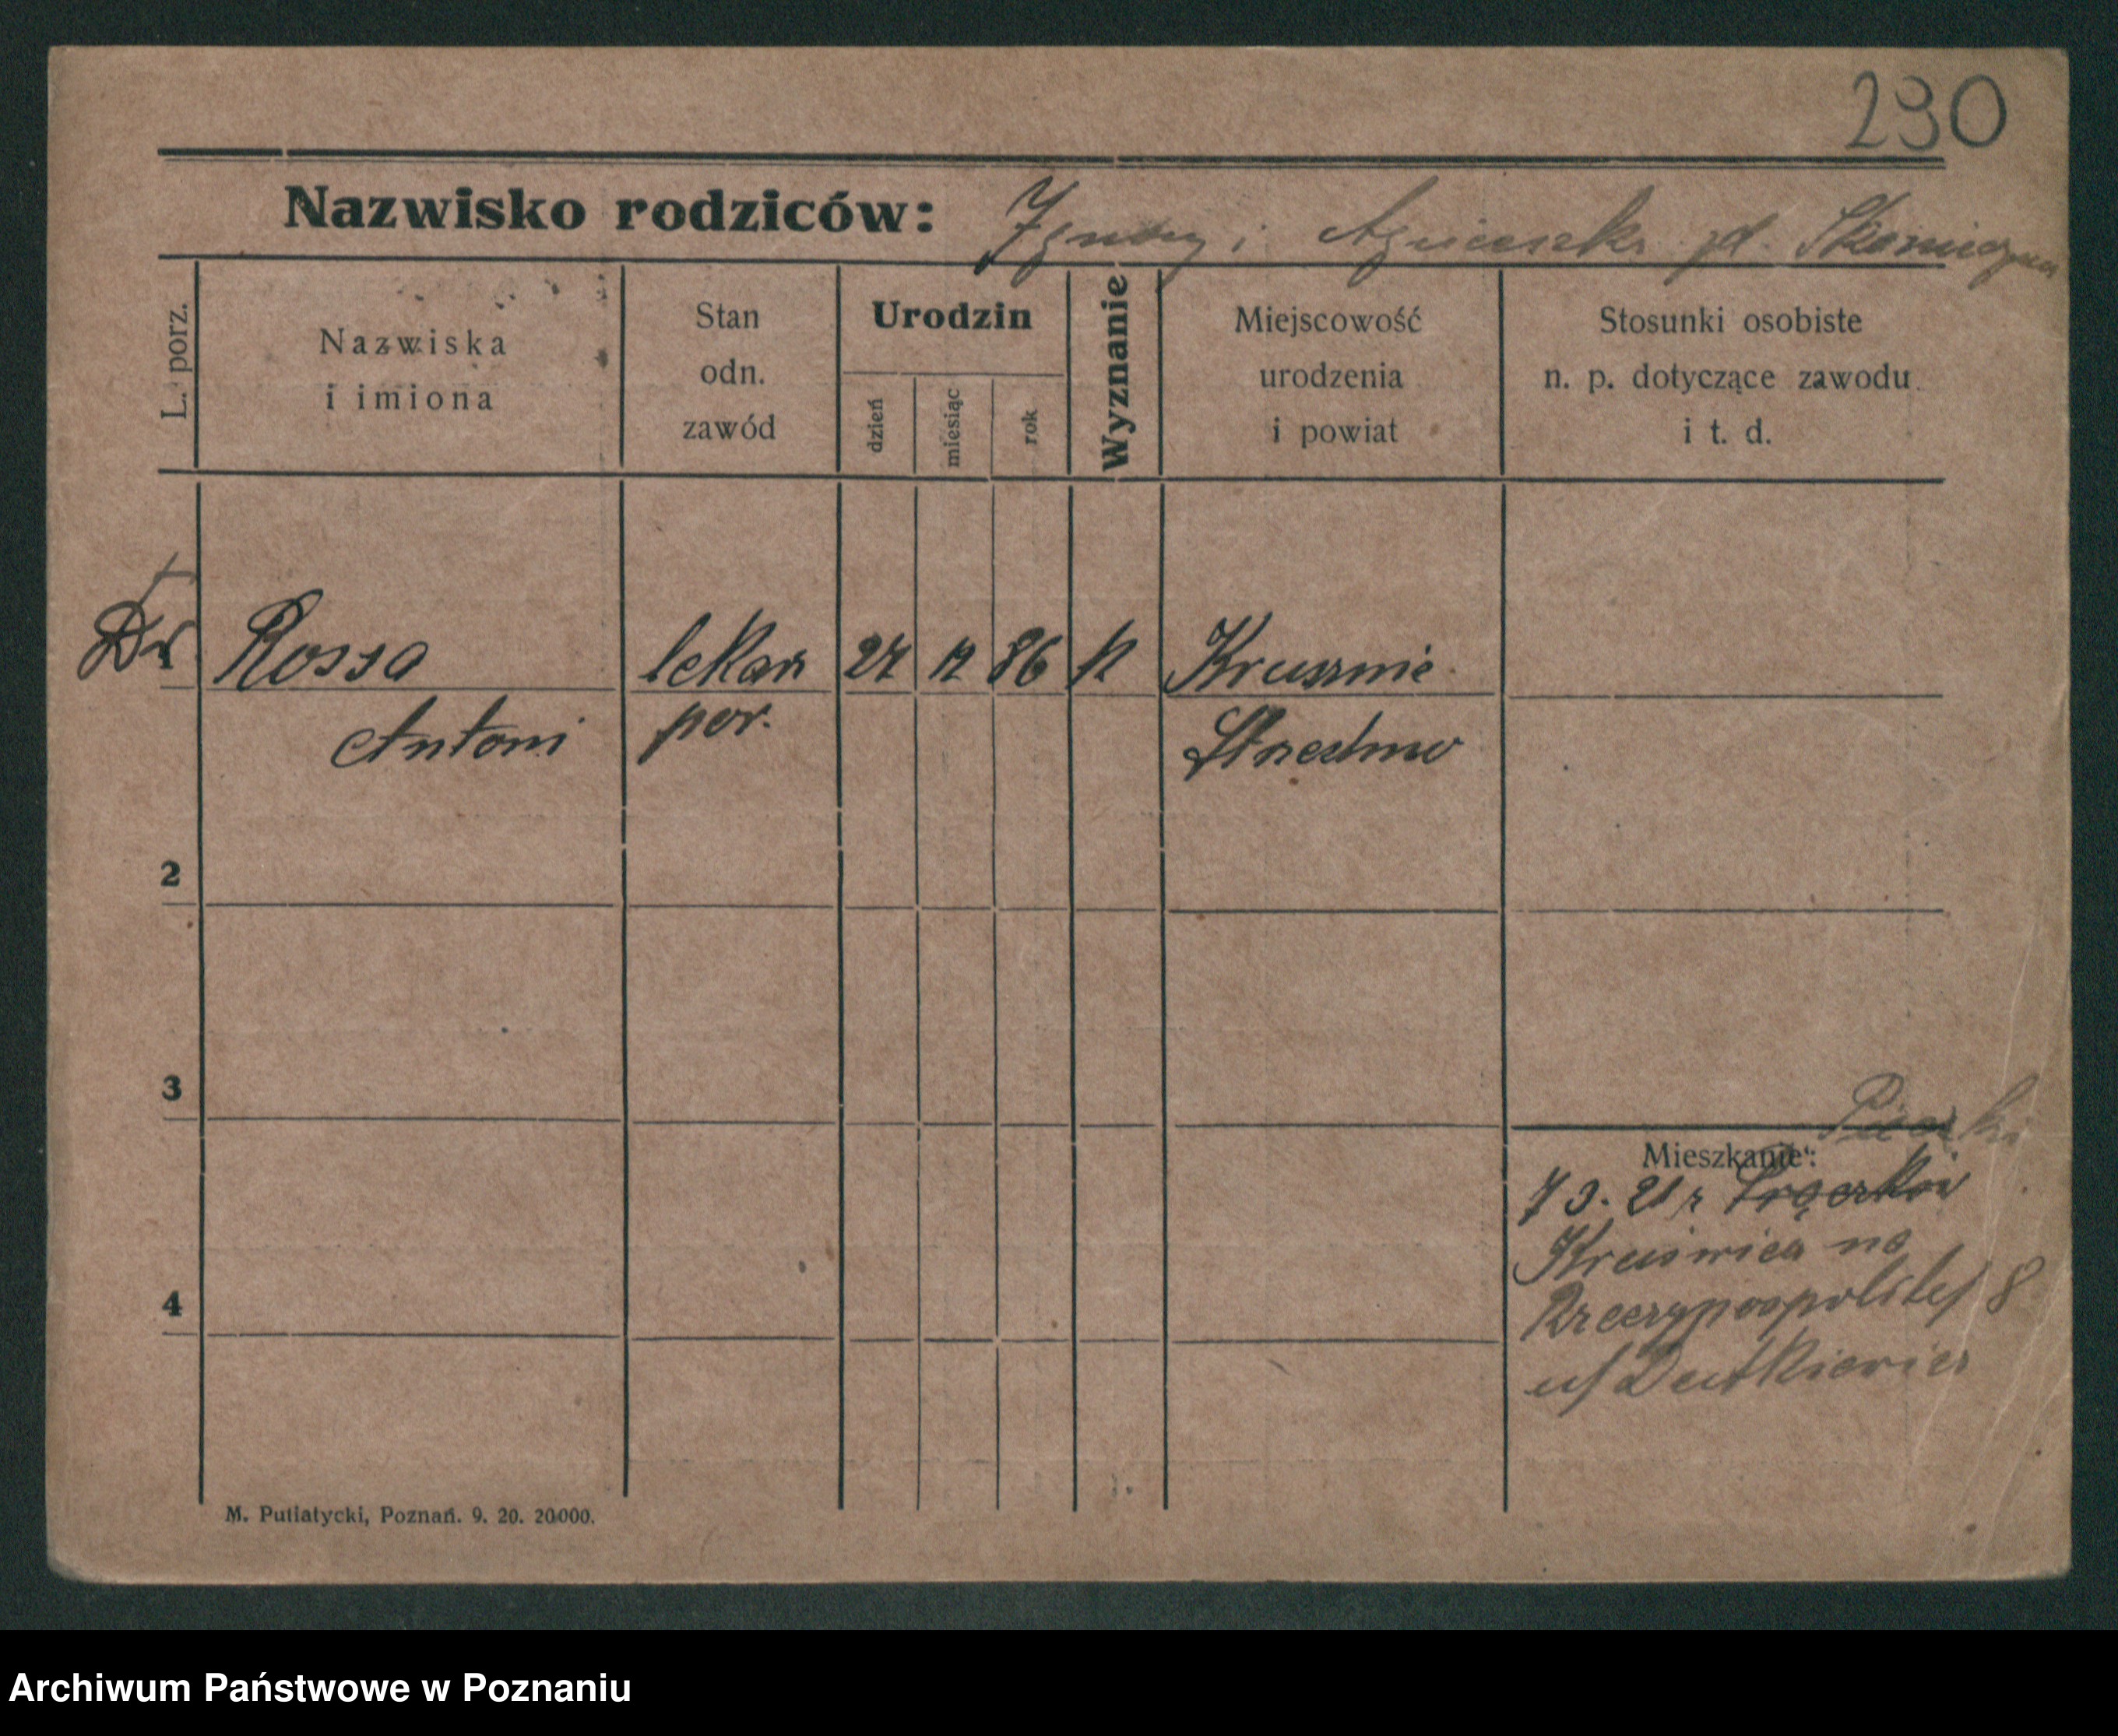 230
Nazwisko rodziców: Ignacy i Agnieszka zd.
L. porz.
Nazwiska
i imiona
Stan
odn.
zawód
Urodzin
dzień
miesiąc
rok
Wyznanie
Miejscowość
urodzenia
i powiat
Stosunki osobiste
n. p. dotyczące zawodu
i t. d.
Dr Rossa lekarz 86 k
Antoni por. Strzelno
2
3
4
Mieszkanie:
Kruświca na
Rzeczypospolitej 8
u/ Dutkiewicz
M. Putiatycki, Poznań. 9. 20. 20000.
Archiwum Państwowe w Poznaniu